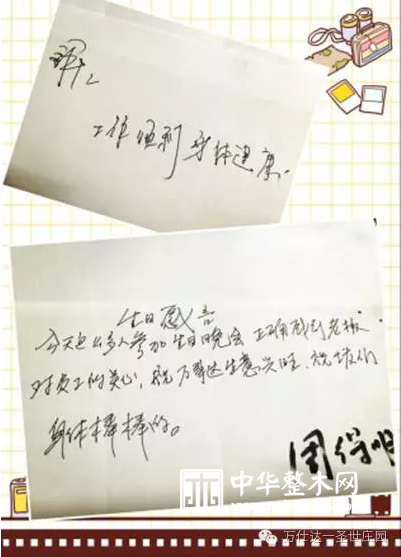 工作顺利身体健康.
生日感言
今天这么多人参加生日晚会 感谢老板
对员工的关心，祝万事达生意兴旺.祝
身体棒棒的。
周保明
中华整木网
万仕达一圣世庄园